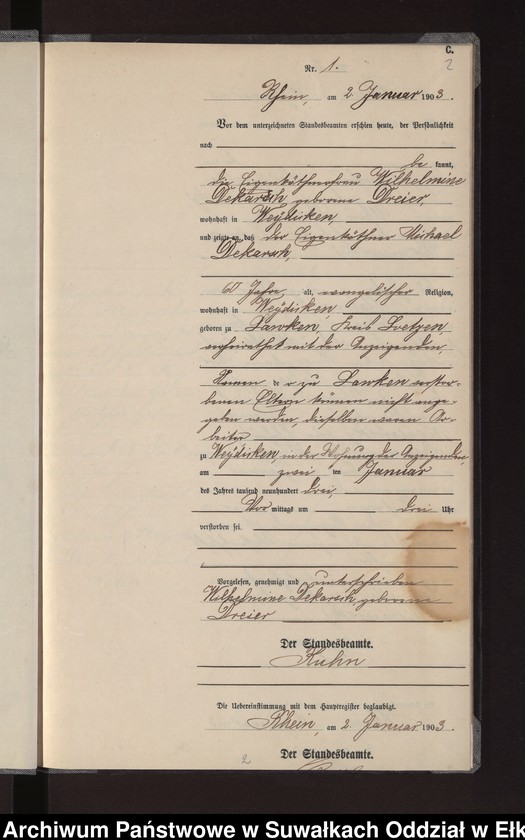 C.
2
Nr. 1.
Rhein, am 2. Januar 1903.
Vor dem unterzeichneten Standesbeamten erschien heute, der Persönlichkeit
nach
be kannt,
die Eigenkäthnerfrau Wilhelmine
Dekarsch, geborene Dreier
wohnhaft in Weydicken,
und zeigte an, daß der Eigenkäthner Michael
Dekarsch,
60 Jahre, alt, evangelischer Religion,
wohnhaft in Weydicken,
geboren zu Lawken, Kreis Loetzen,
verheirathet mit der Anzeigenden,
Namen der zu Lawken verstor-
benen Eltern können nicht ange-
geben werden, dieselben waren Ar-
beiter
zu Weydicken, in der Wohnung der Anzeigenden,
am zwei ten Januar
des Jahres tausend neunhundert drei,
Vor mittags um drei Uhr
verstorben sei.
Vorgelesen, genehmigt und unterschrieben
Wilhelmine Dekarsch geborene
Dreier
Der Standesbeamte.
Kuhn
Die Uebereinstimmung mit dem Hauptregister beglaubigt.
Rhein, am 2. Januar 1903.
Der Standesbeamte.
2
Archiwum Państwowe w Suwałkach Oddział w Ełk